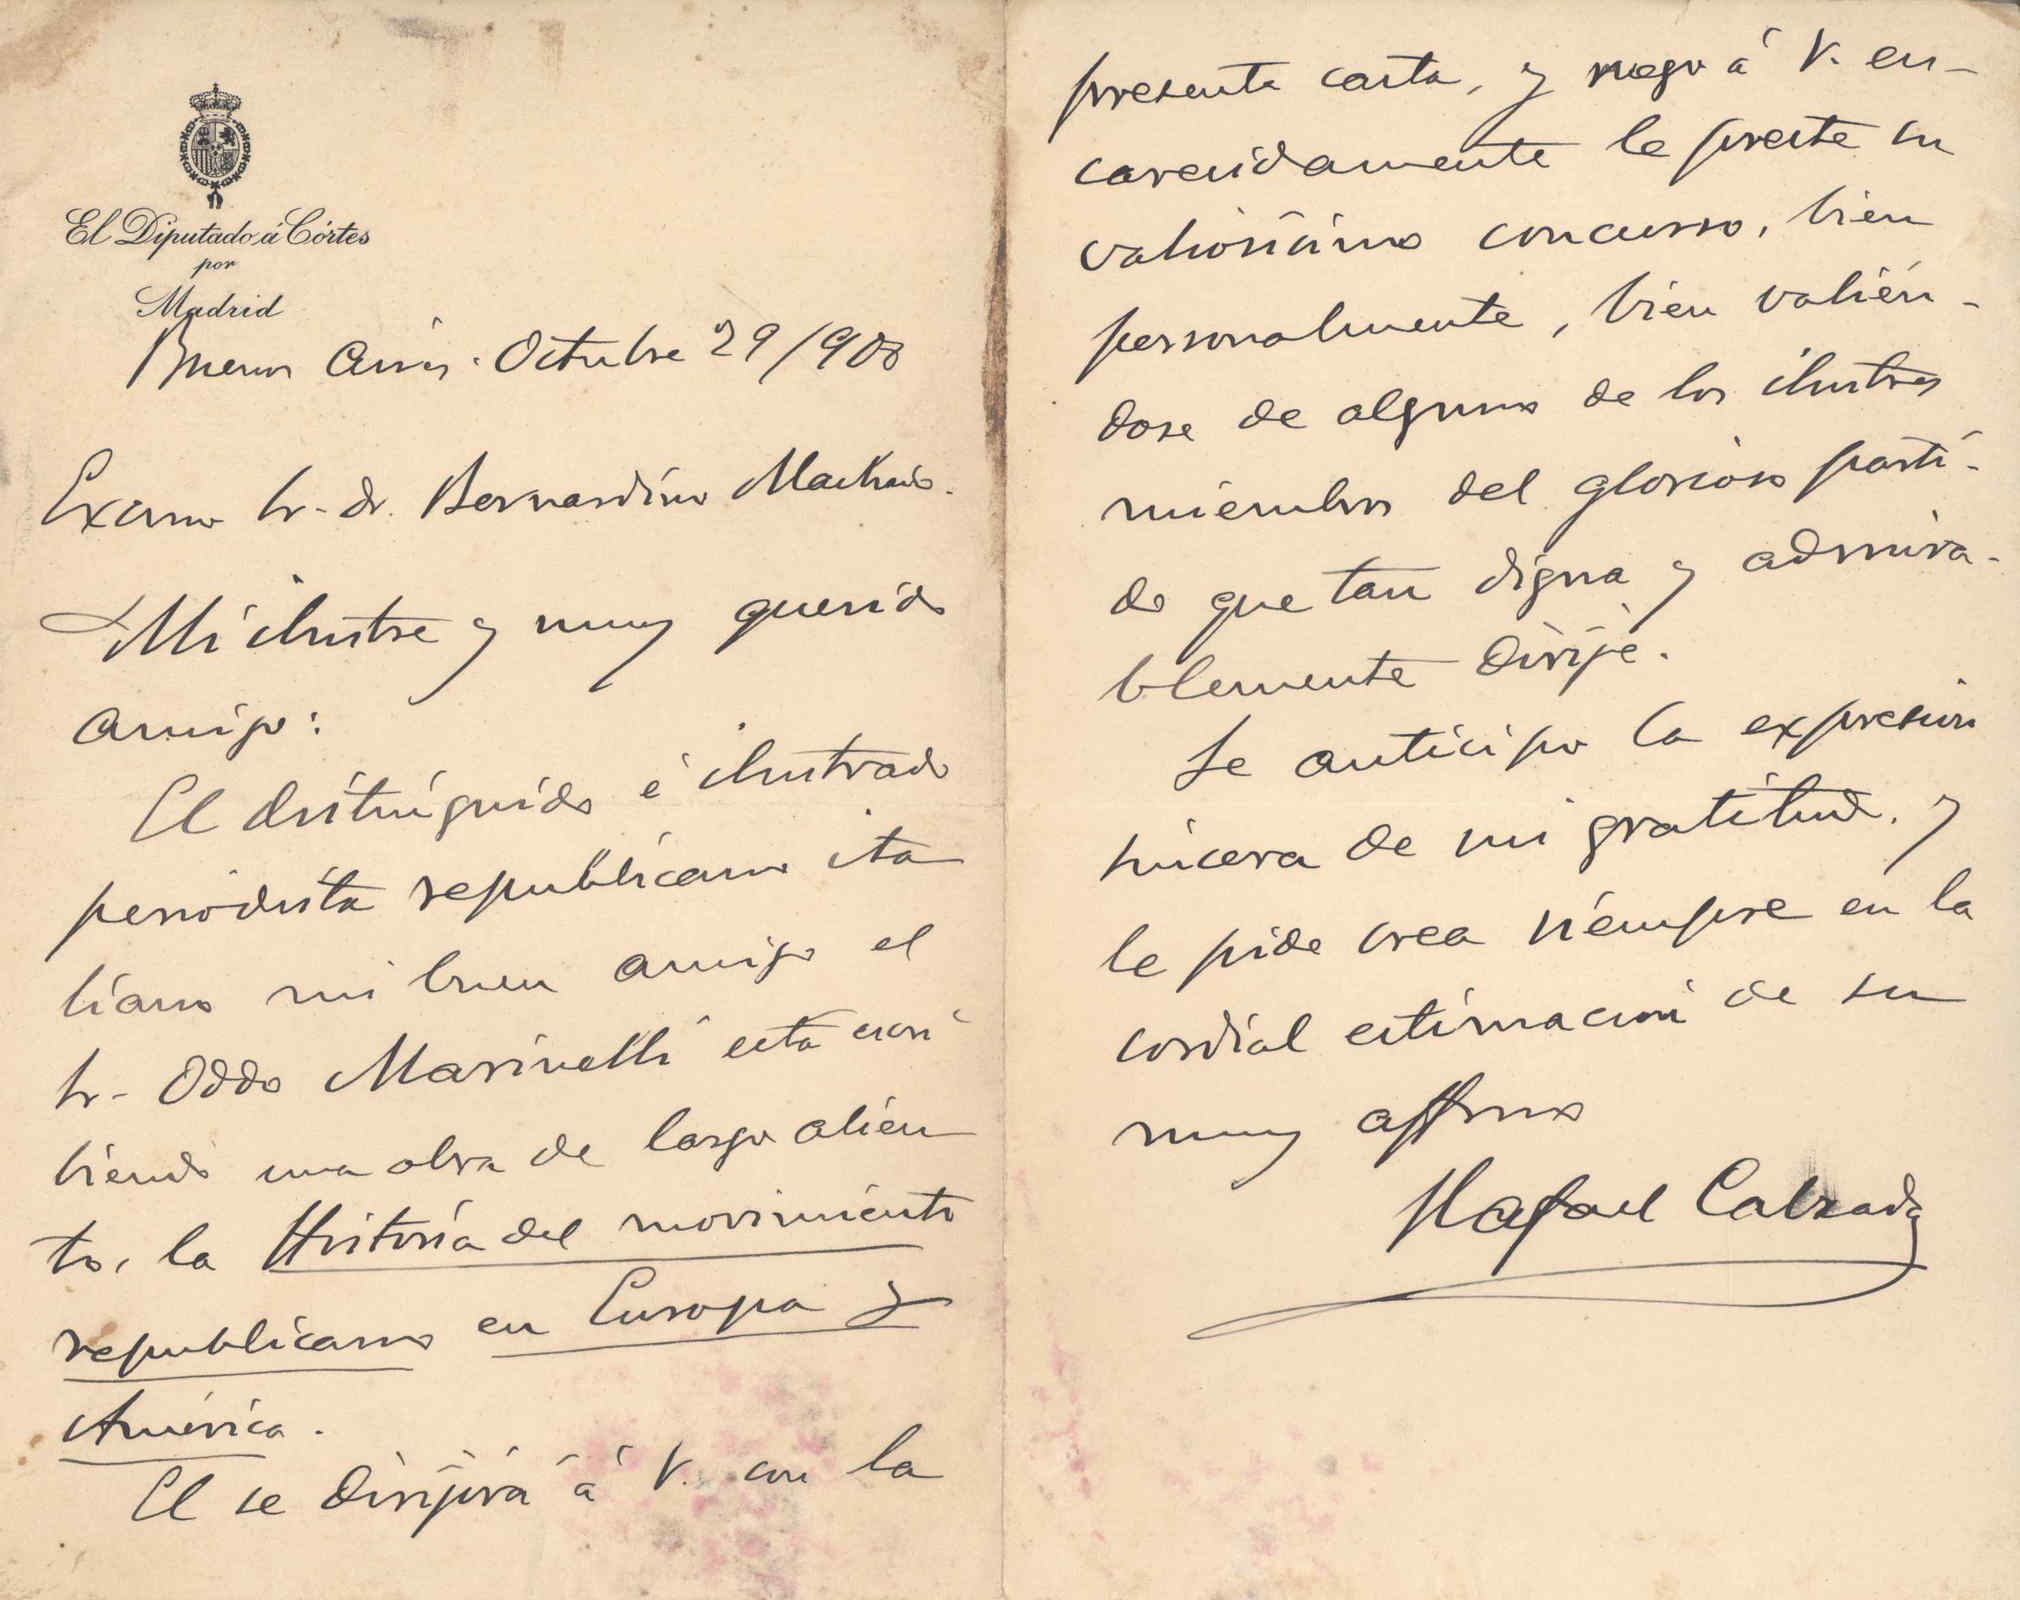 El Diputado á Córtes
por
Madrid
Buenos Aires. Octubre 29/908
Excmo Sr. dr. Bernardino Machado.
Mi ilustre y muy querido
amigo:
El distinguido é ilustrado
periodista republicano ita
liano mi buen amigo el
Sr. Oddo Marinelli está escri
biendo una obra de largo alien
to, la Historia del movimiento
republicano en Europa y
América.
El se dirijirá á V. con la
presente carta, y ruego á V. en-
carecidamente le preste su
valiosísimo concurso, bien
personalmente, bien valién-
dose de alguno de los ilustres
miembros del glorioso parti-
do que tan digna y admira-
blemente dirije.
Le anticipo la expresión
sincera de mi gratitud, y
le pide crea siempre en la
cordial estimación de su
muy affmo
Rafael Calzada